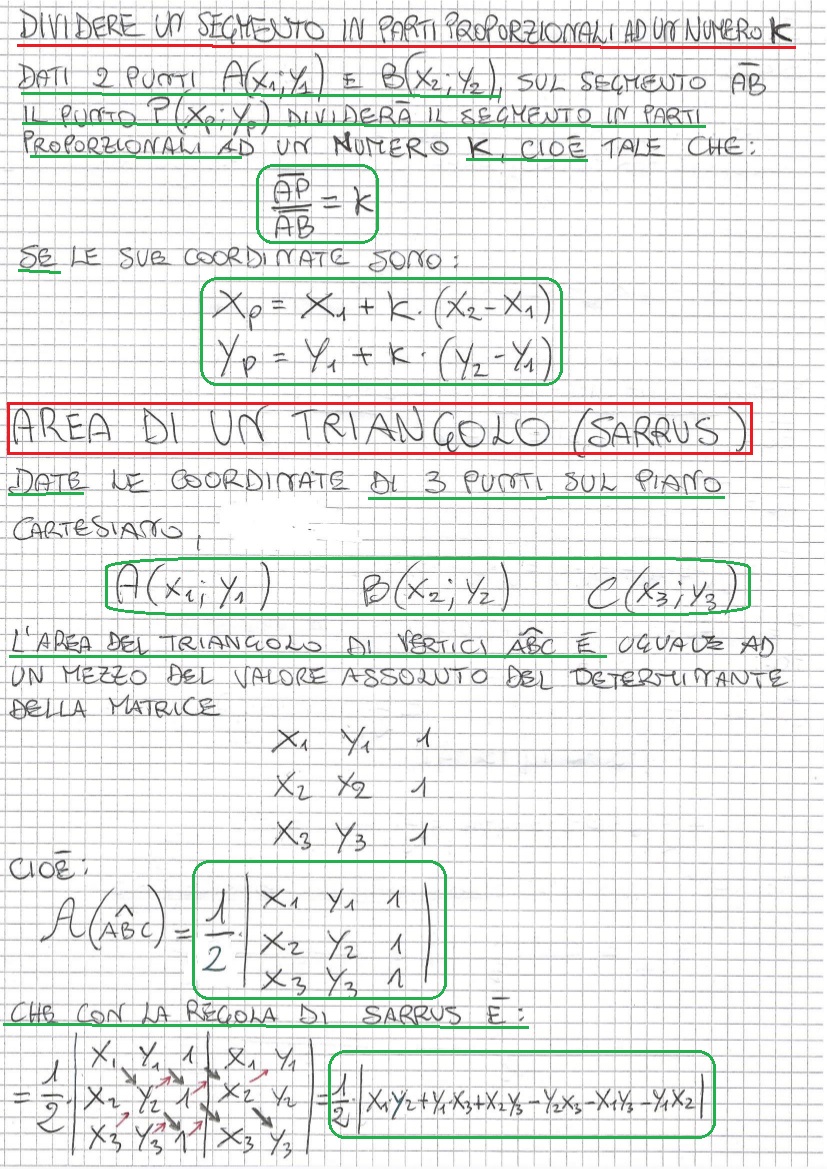 DIVIDERE UN SEGMENTO IN PARTI PROPORZIONALI AD UN NUMERO K
DATI 2 PUNTI A(X₁;Y₁) E B(X₂;Y₂), SUL SEGMENTO A̅B̅
IL PUNTO P(Xₚ;Yₚ) DIVIDERÀ IL SEGMENTO IN PARTI
PROPORZIONALI AD UN NUMERO K, CIOÈ TALE CHE:
A̅P̅/A̅B̅ = K
SE LE SUE COORDINATE SONO:
Xₚ = X₁ + K · (X₂ - X₁)
Yₚ = Y₁ + K · (Y₂ - Y₁)
AREA DI UN TRIANGOLO (SARRUS)
DATE LE COORDINATE DI 3 PUNTI SUL PIANO
CARTESIANO,
A(X₁;Y₁) B(X₂;Y₂) C(X₃;Y₃)
L'AREA DEL TRIANGOLO DI VERTICI AB̂C È UGUALE AD
UN MEZZO DEL VALORE ASSOLUTO DEL DETERMINANTE
DELLA MATRICE
X₁ Y₁ 1
X₂ Y₂ 1
X₃ Y₃ 1
CIOÈ:
A(AB̂C) = 1/2 · | X₁ Y₁ 1
X₂ Y₂ 1
X₃ Y₃ 1 |
CHE CON LA REGOLA DI SARRUS È:
= 1/2 · | X₁ Y₁ 1 | X₁ Y₁
X₂ Y₂ 1 | X₂ Y₂
X₃ Y₃ 1 | X₃ Y₃ | = 1/2 · | X₁·Y₂+Y₁·X₃+X₂Y₃-Y₂X₃-X₁Y₃-Y₁X₂ |